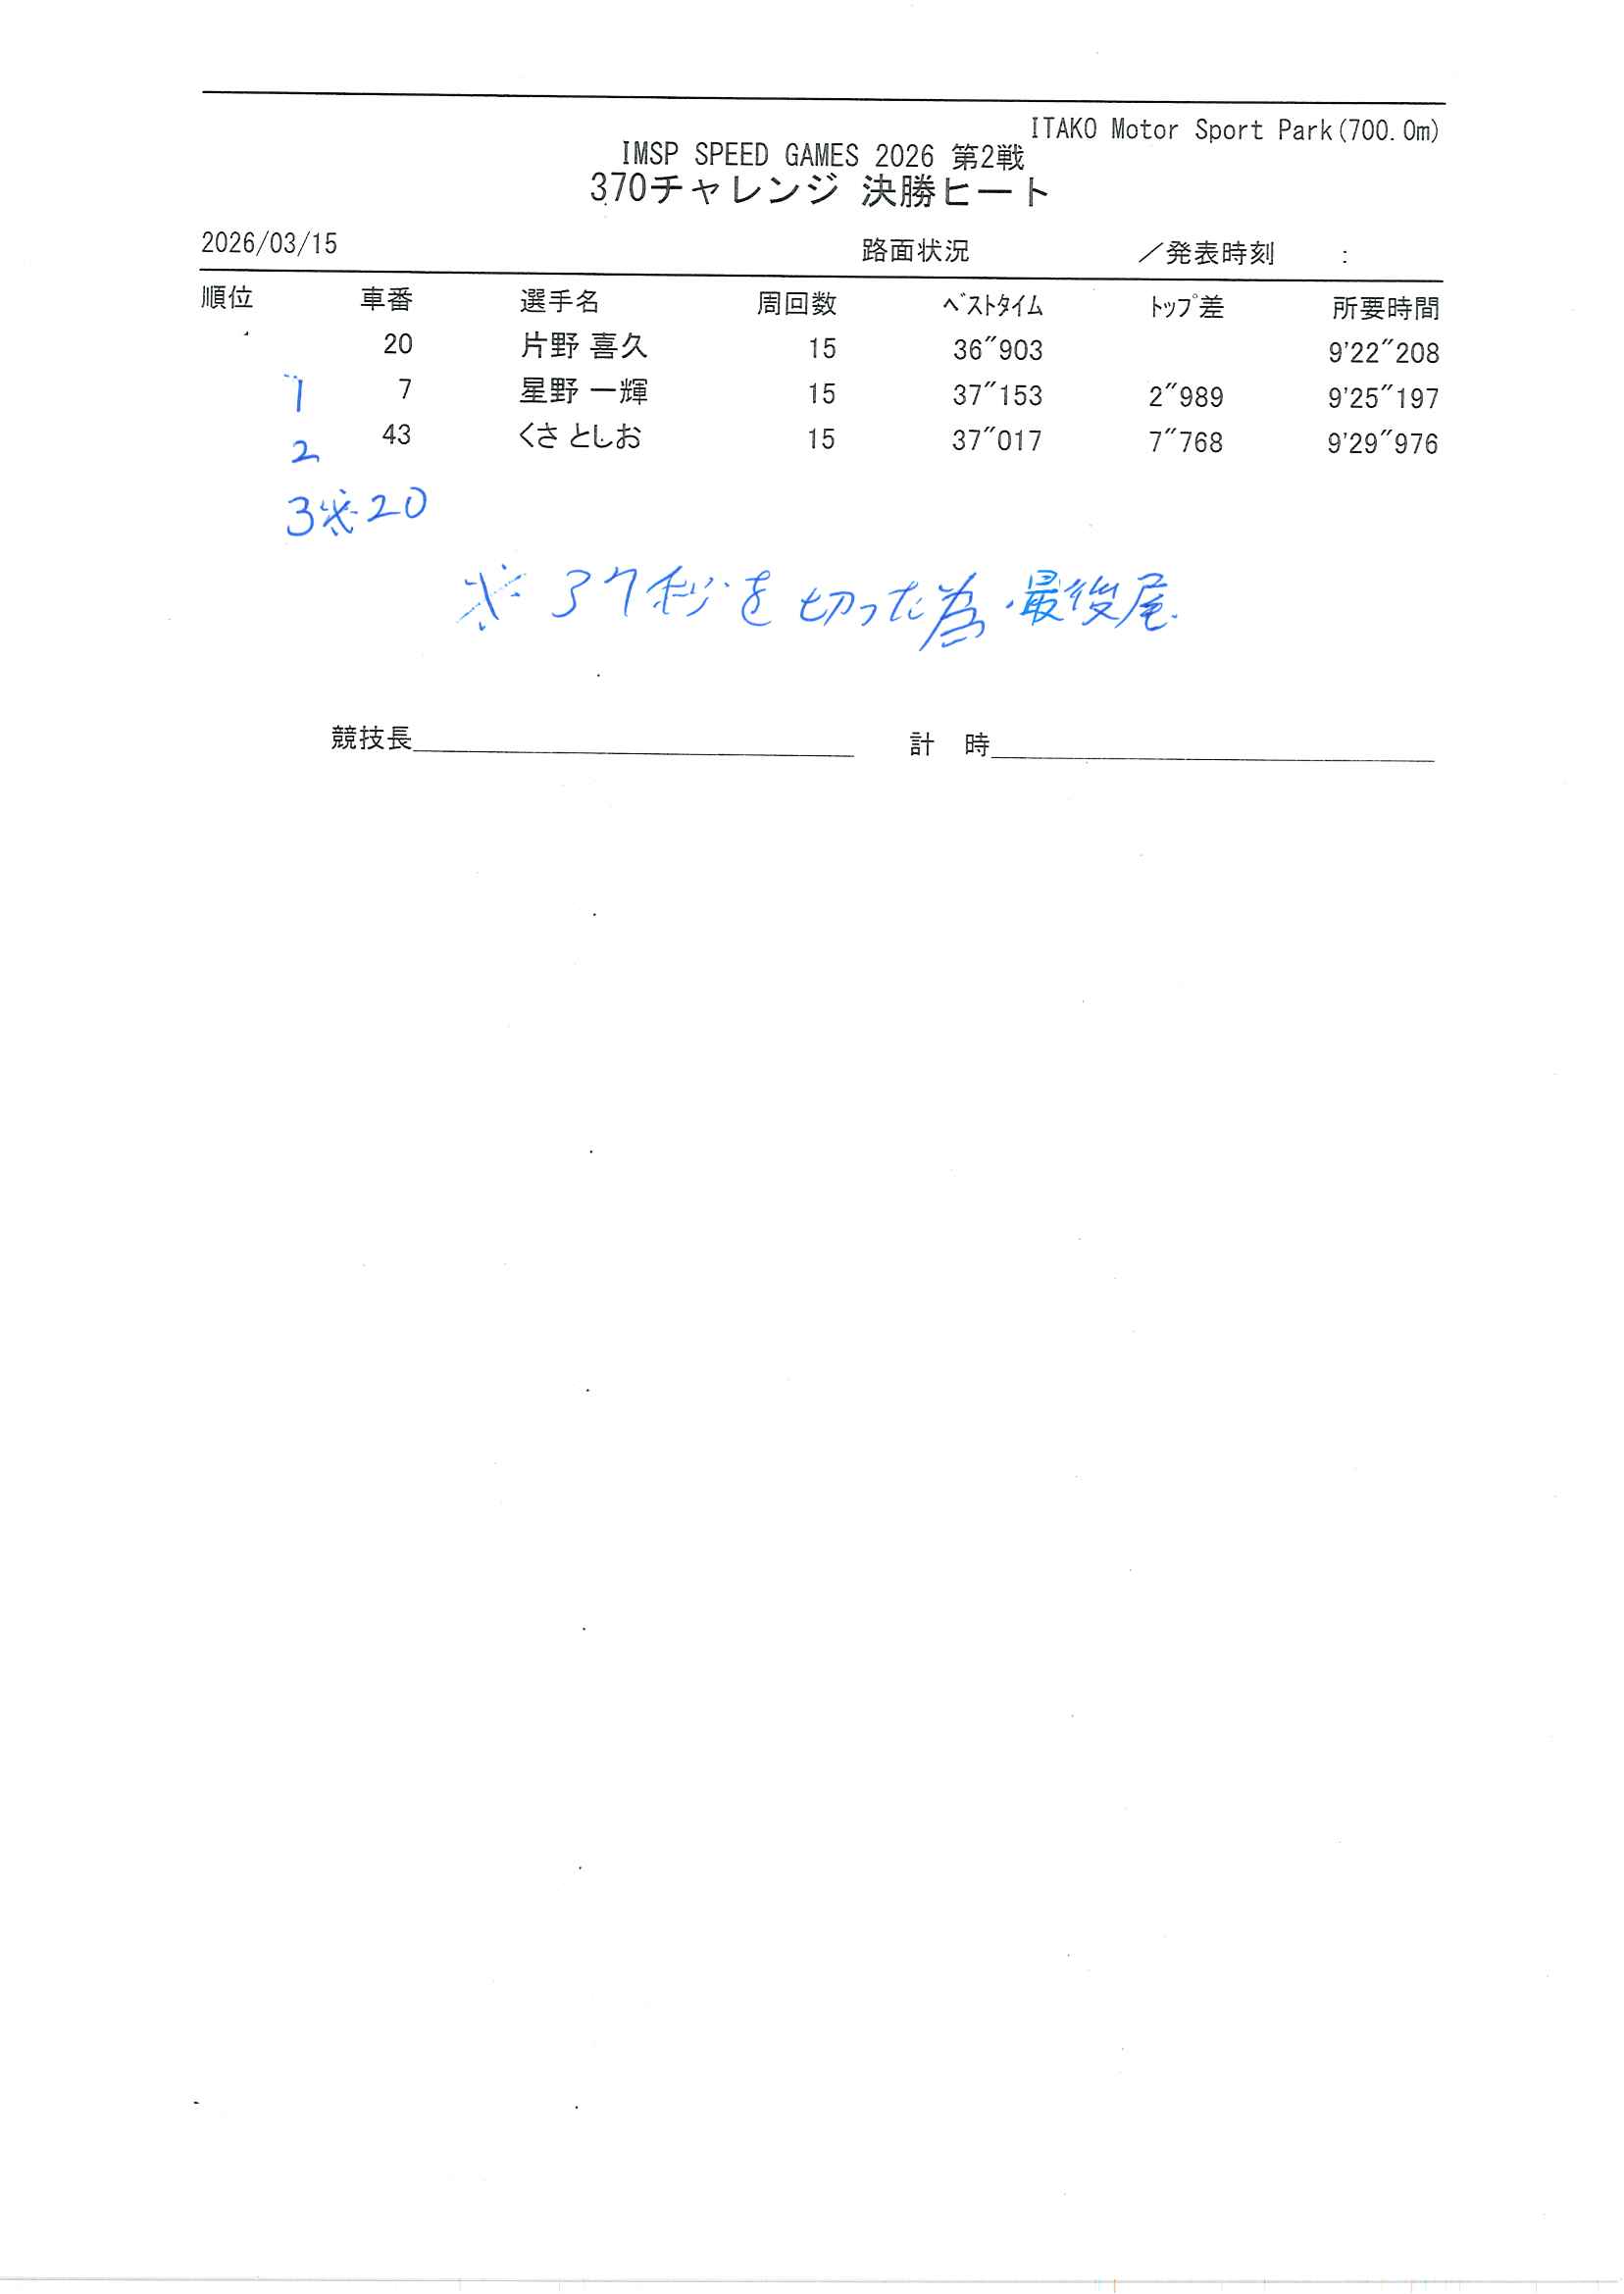 ITAKO Motor Sport Park(700.0m)
IMSP SPEED GAMES 2026 第2戦
370チャレンジ 決勝ヒート
2026/03/15 路面状況 ／発表時刻 :
順位 車番 選手名 周回数 ﾍﾞｽﾄﾀｲﾑ ﾄｯﾌﾟ差 所要時間
20 片野 喜久 15 36″903 9'22″208
1 7 星野 一輝 15 37″153 2″989 9'25″197
2 43 くさ としお 15 37″017 7″768 9'29″976
3※20
※37秒を切った為、最後尾.
競技長 計　時